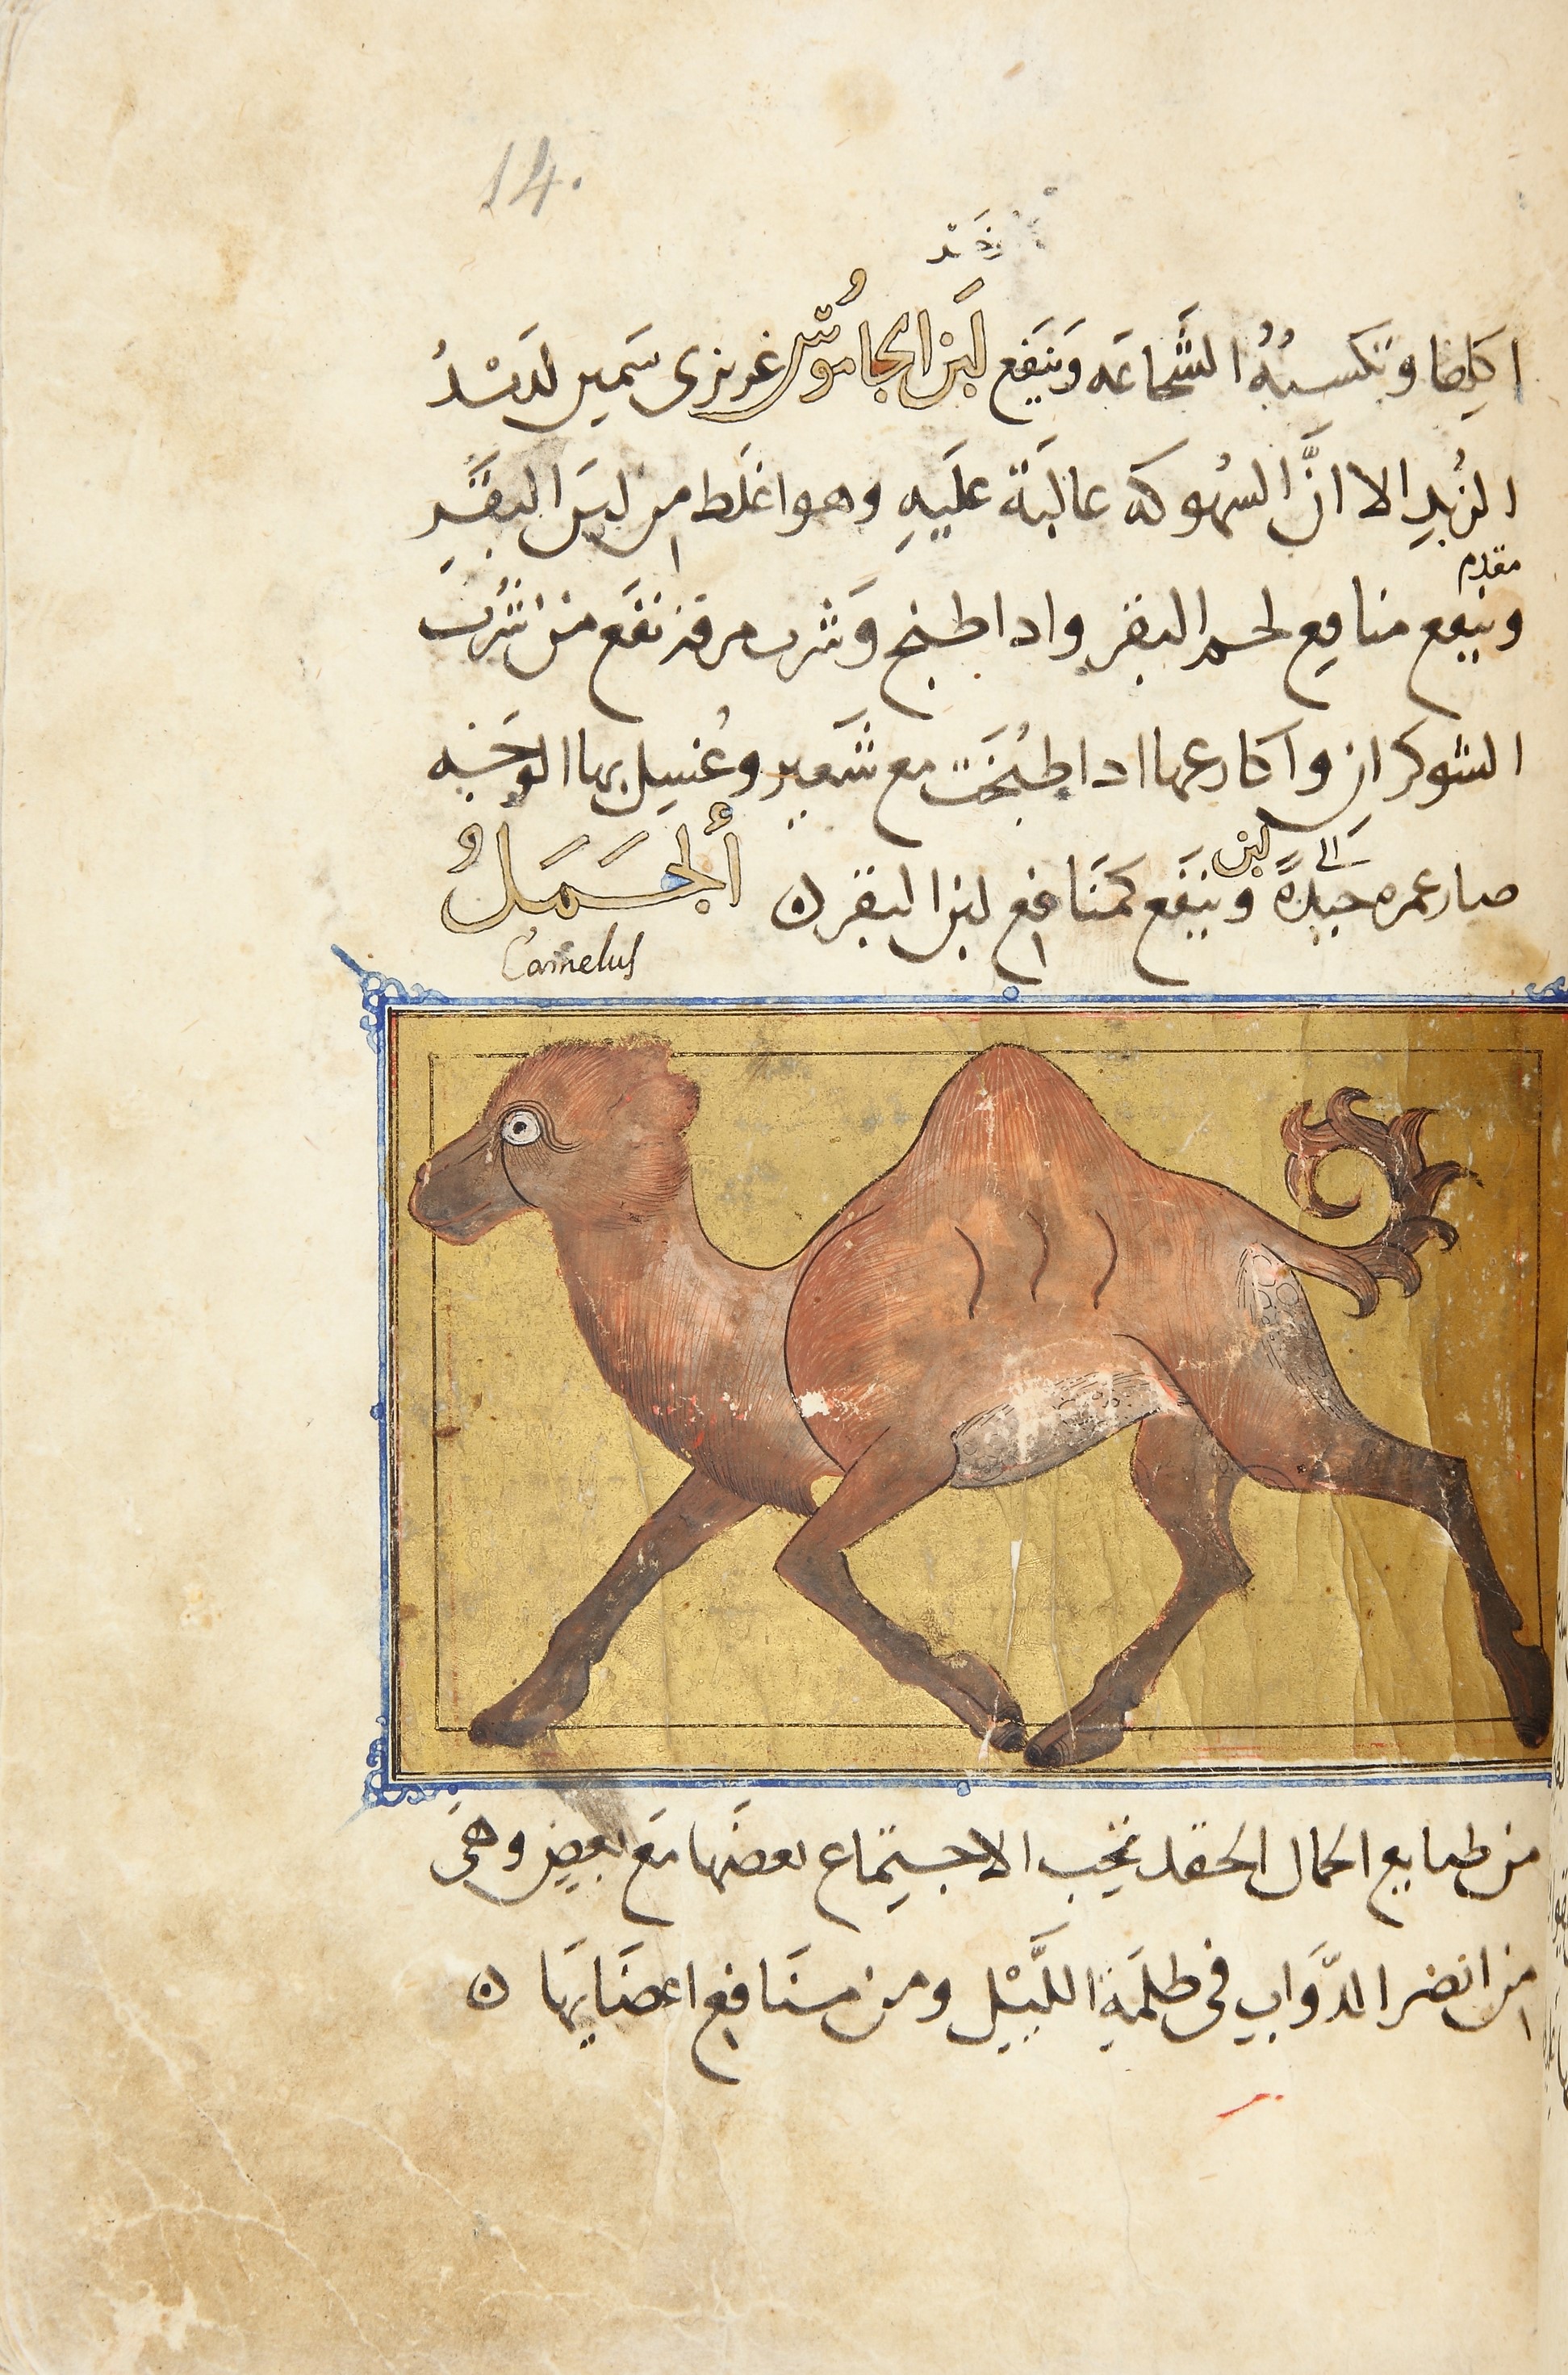 14.
اكلها وتكسبه الشجاعه وينفع لبن الجاموس غريزى سمين لديد
الزبد الا ان السهوكه غالبة عليه وهو اغلظ من لبن البقر
مقدم
وينفع منافع لحم البقر وادا طبخ وشرب مرقه نفع من شرب
الشوكران واكارعها ادا طبخت مع شعير وغسل بها الوجه
لبن
صار عمره وينفع كمنافع لبن البقر ن الجمل
Camelus
من طبايع الجمال الحقد تحب الاجتماع بعضها مع بعض وهى
من انضر الدواب فى ظلمة الليل ومن منافع اعضايها ن